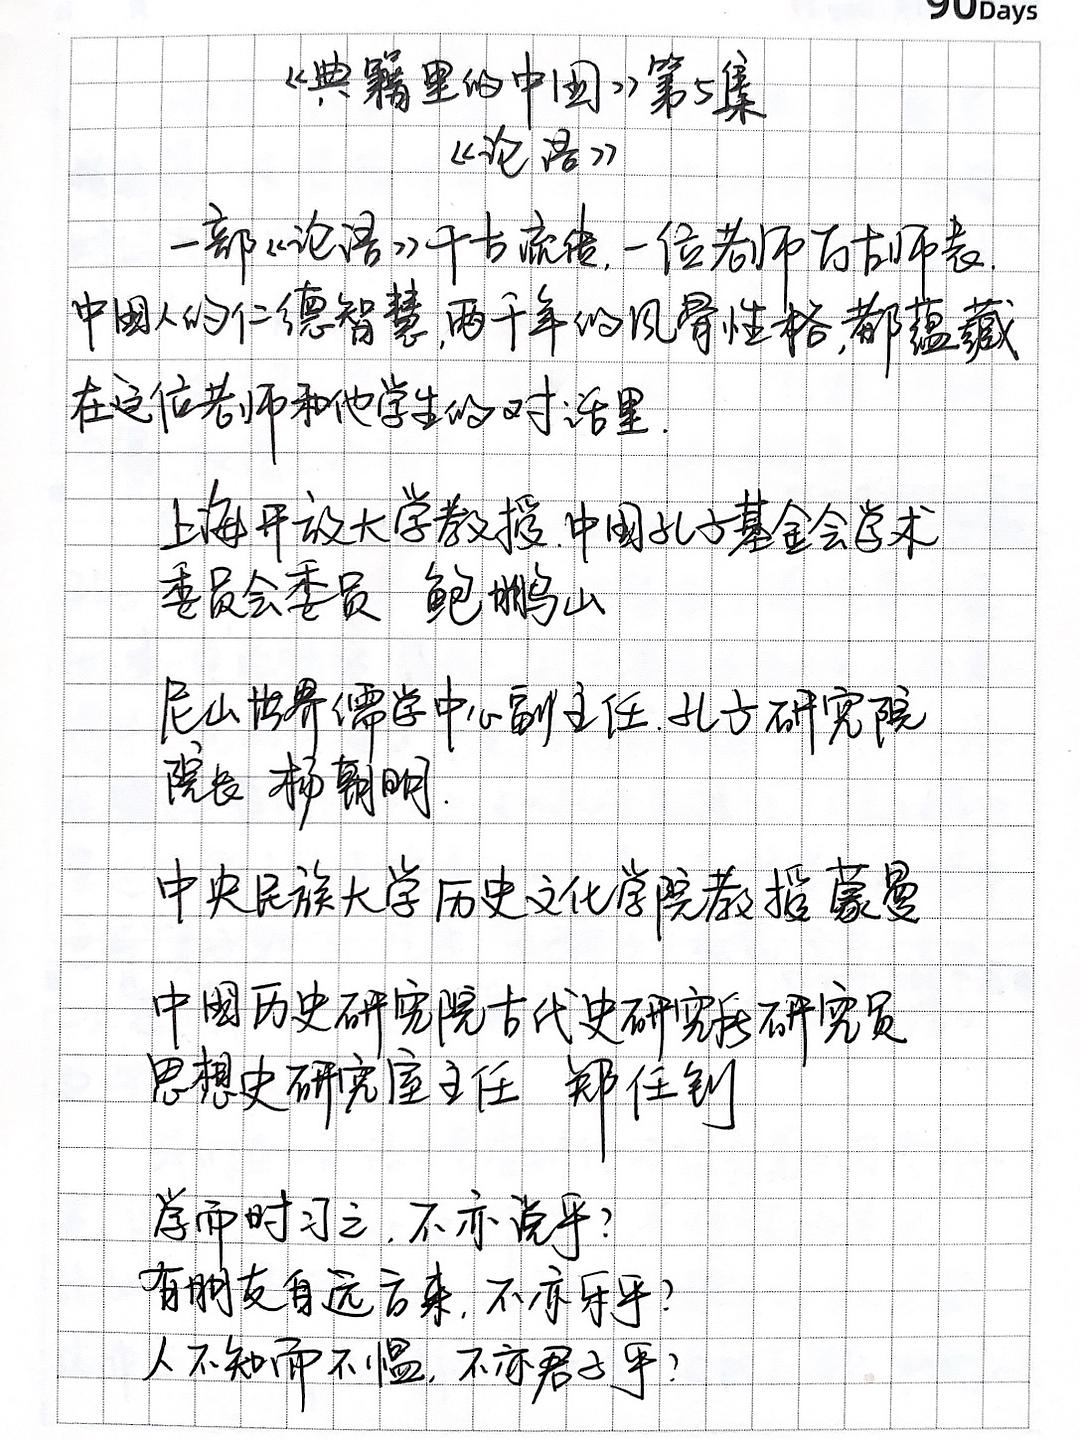 90Days
《典籍里的中国》第5集
《论语》
一部《论语》千古流传,一位老师万古师表.
中国人的仁德智慧,两千年的风骨性格,都蕴藏
在这位老师和他学生的对话里.
上海开放大学教授.中国孔子基金会学术
委员会委员 鲍鹏山
尼山世界儒学中心副主任.孔子研究院
院长 杨朝明.
中央民族大学历史文化学院教授 蒙曼
中国历史研究院古代史研究所研究员
思想史研究室主任 郑任钊
学而时习之,不亦说乎?
有朋友自远方来,不亦乐乎?
人不知而不愠,不亦君子乎?